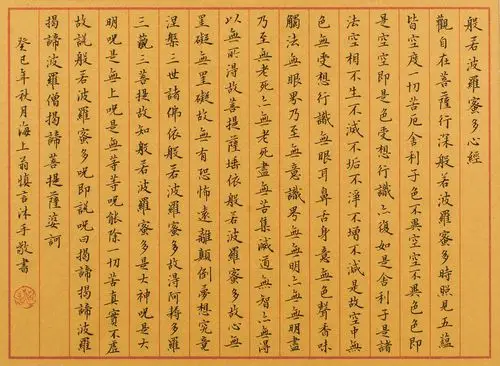 般若波羅蜜多心經
觀自在菩薩行深般若波羅蜜多時照見五蘊
皆空度一切苦厄舍利子色不異空空不異色色即
是空空即是色受想行識亦復如是舍利子是諸
法空相不生不滅不垢不淨不增不減是故空中無
色無受想行識無眼耳鼻舌身意無色聲香味
觸法無眼界乃至無意識界無無明亦無無明盡
乃至無老死亦無老死盡無苦集滅道無智亦無得
以無所得故菩提薩埵依般若波羅蜜多故心無
罣礙無罣礙故無有恐怖遠離顛倒夢想究竟
涅槃三世諸佛依般若波羅蜜多故得阿耨多羅
三藐三菩提故知般若波羅蜜多是大神呪是大
明呪是無上呪是無等等呪能除一切苦真實不虛
故說般若波羅蜜多呪即說呪曰揭諦揭諦波羅
揭諦波羅僧揭諦菩提薩婆訶
癸巳年秋月海上翁慎言沐手敬書